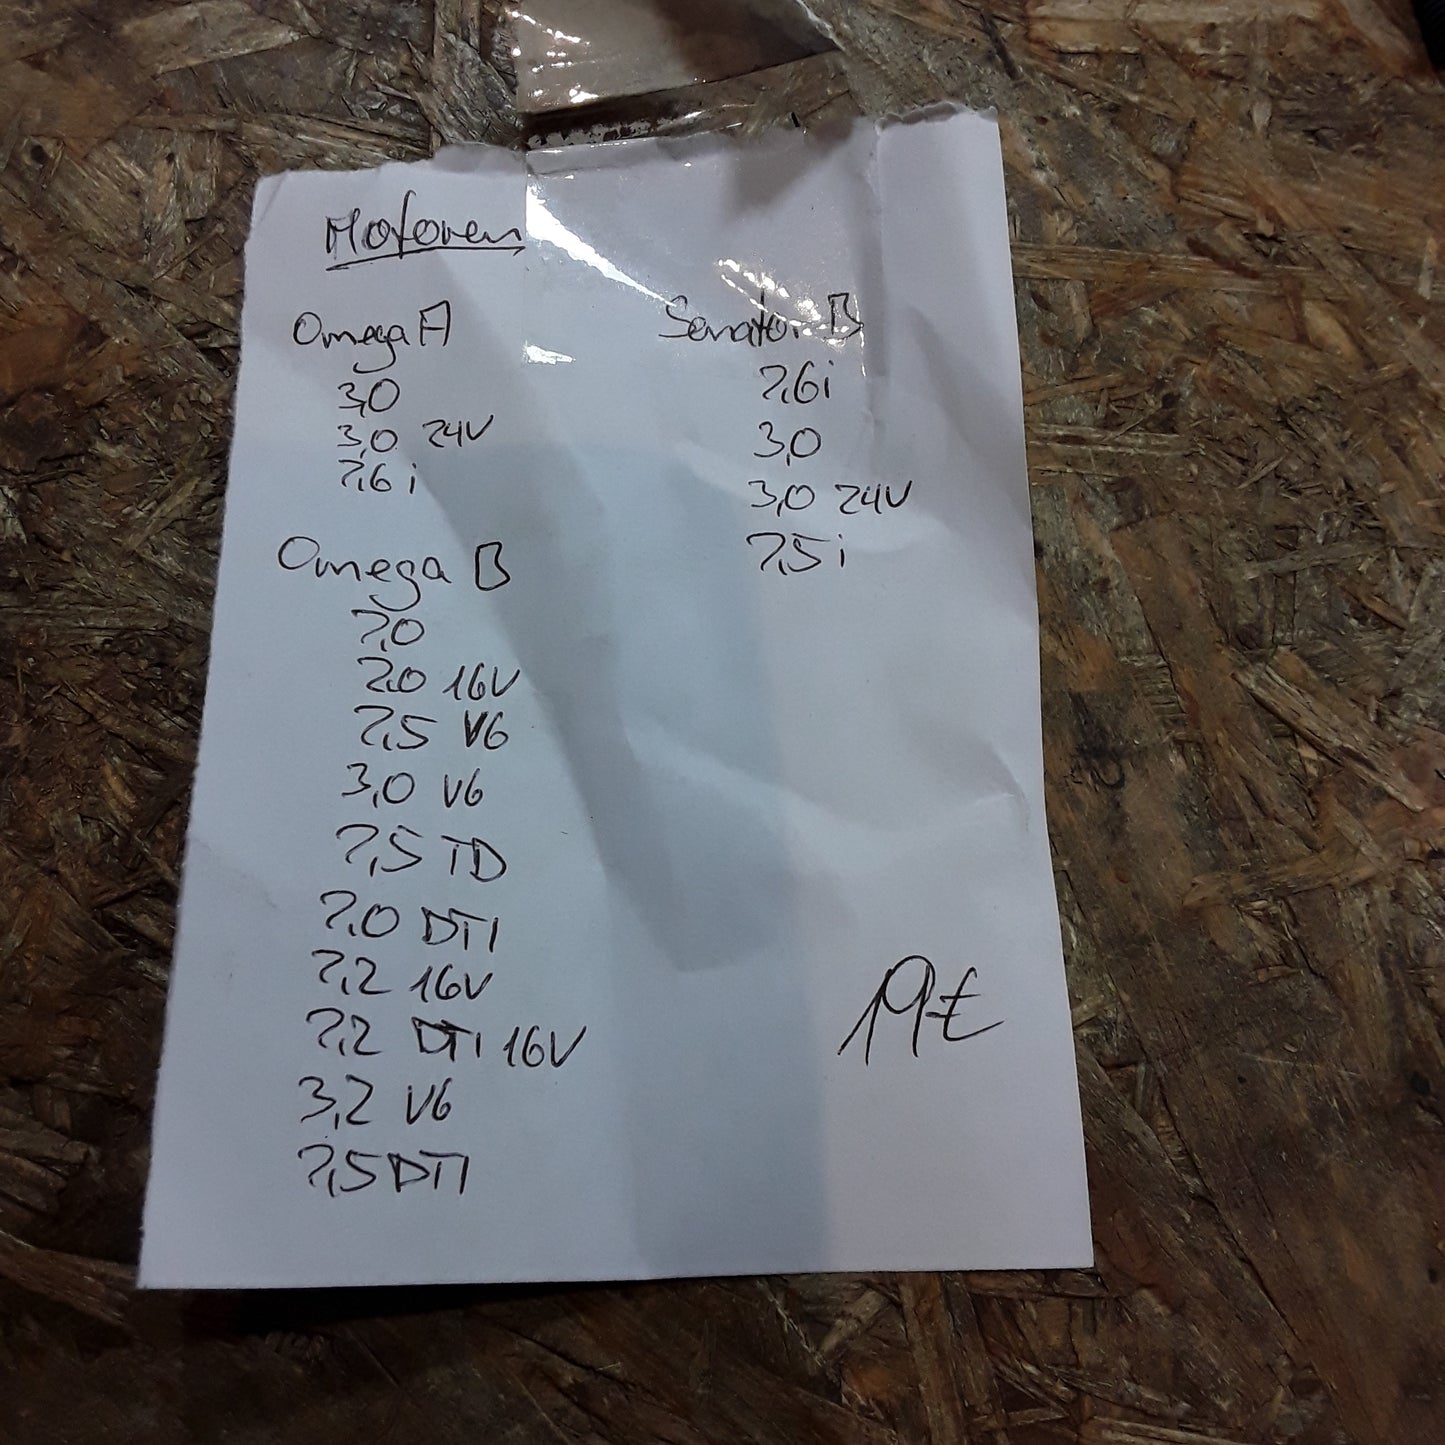 Motoren
Omega A
3,0
3,0 24V
2,6 i
Omega B
2,0
2,0 16V
2,5 V6
3,0 V6
2,5 TD
2,0 DTI
2,2 16V
2,2 DTi 16V
3,2 V6
2,5 DTI
Senator B
2,6i
3,0
3,0 24V
2,5 i
19€